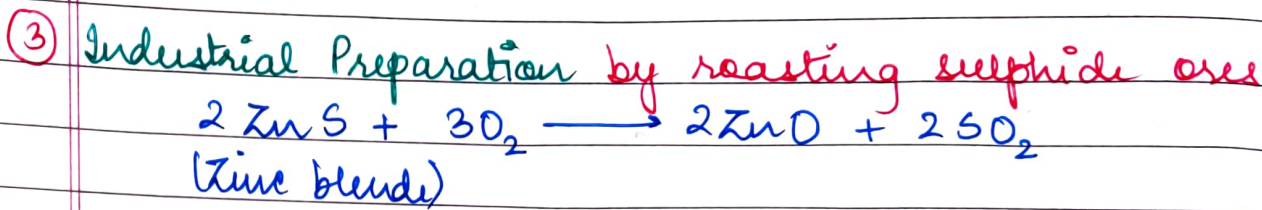 3 Industrial Preparation by roasting sulphide ores
2 ZnS + 3O₂ ⟶ 2ZnO + 2SO₂
(Zinc blende)